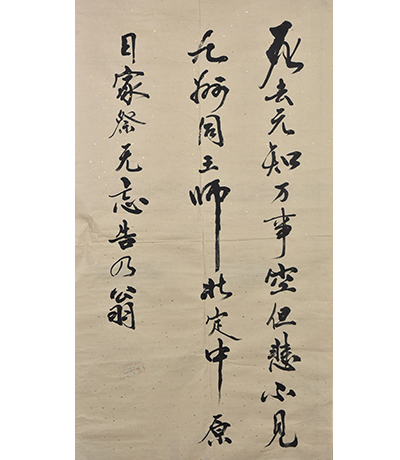 死去元知万事空但悲不見
九州同王師北定中原
日家祭无忘告乃翁